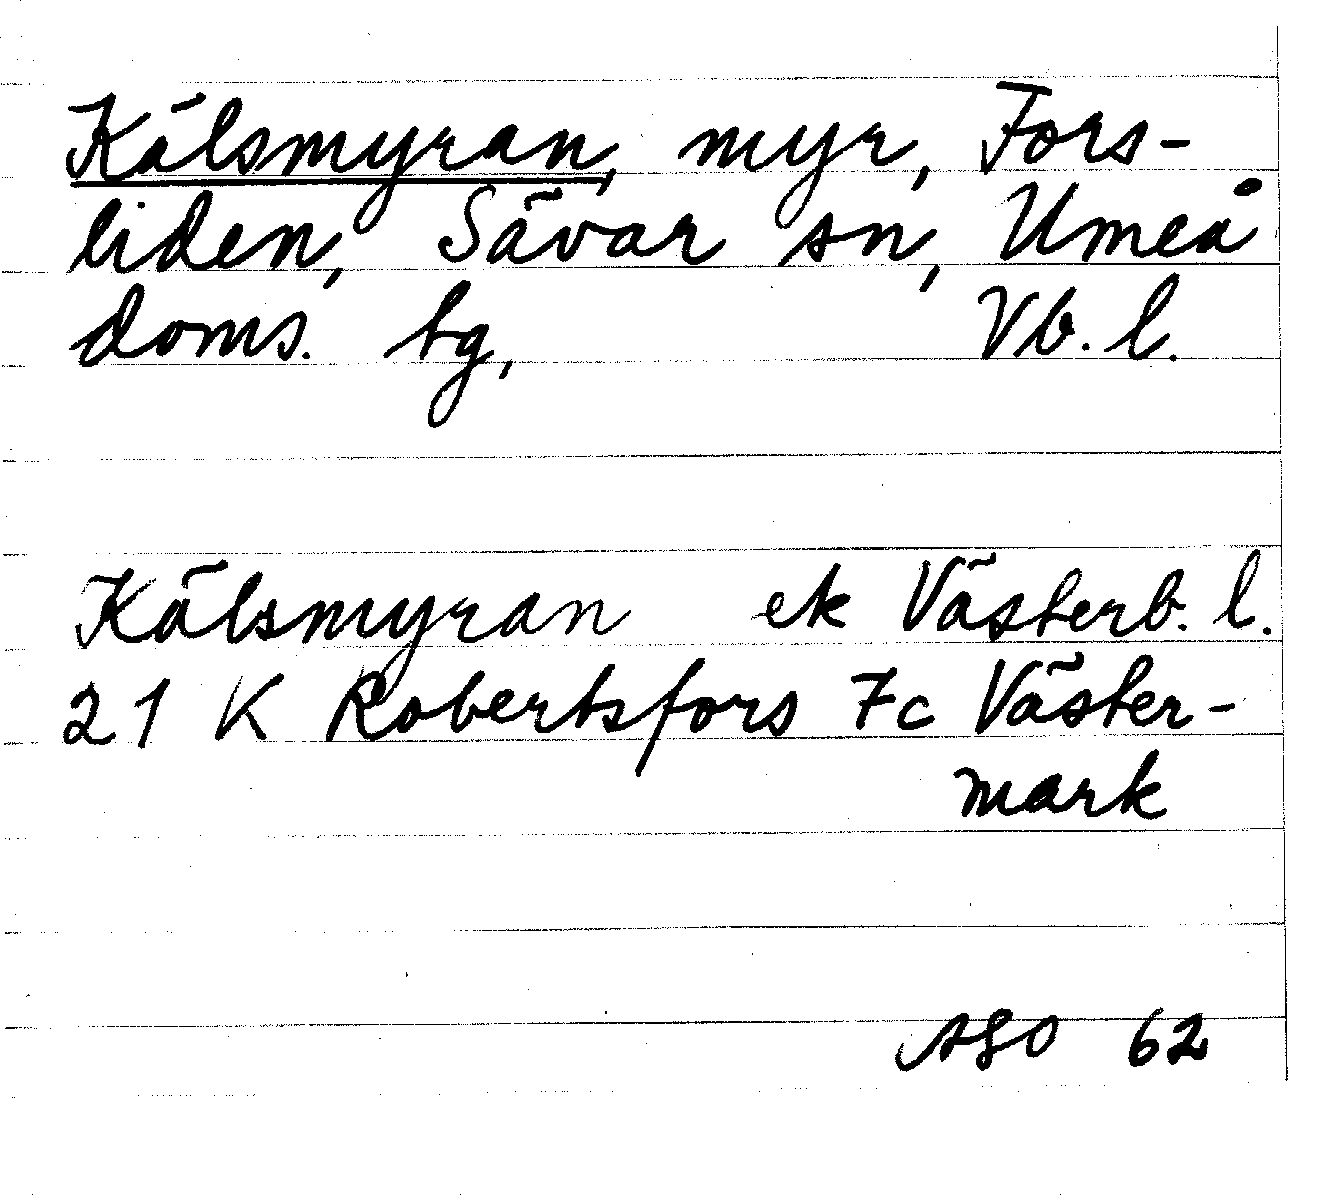 Kälsmyran, myr, Fors-
liden, Sävar sn, Umeå
doms. hg, Vb. l.
Kälsmyran ek Västerb. l.
21 K Robertsfors 7c Väster-
mark
ASO 62